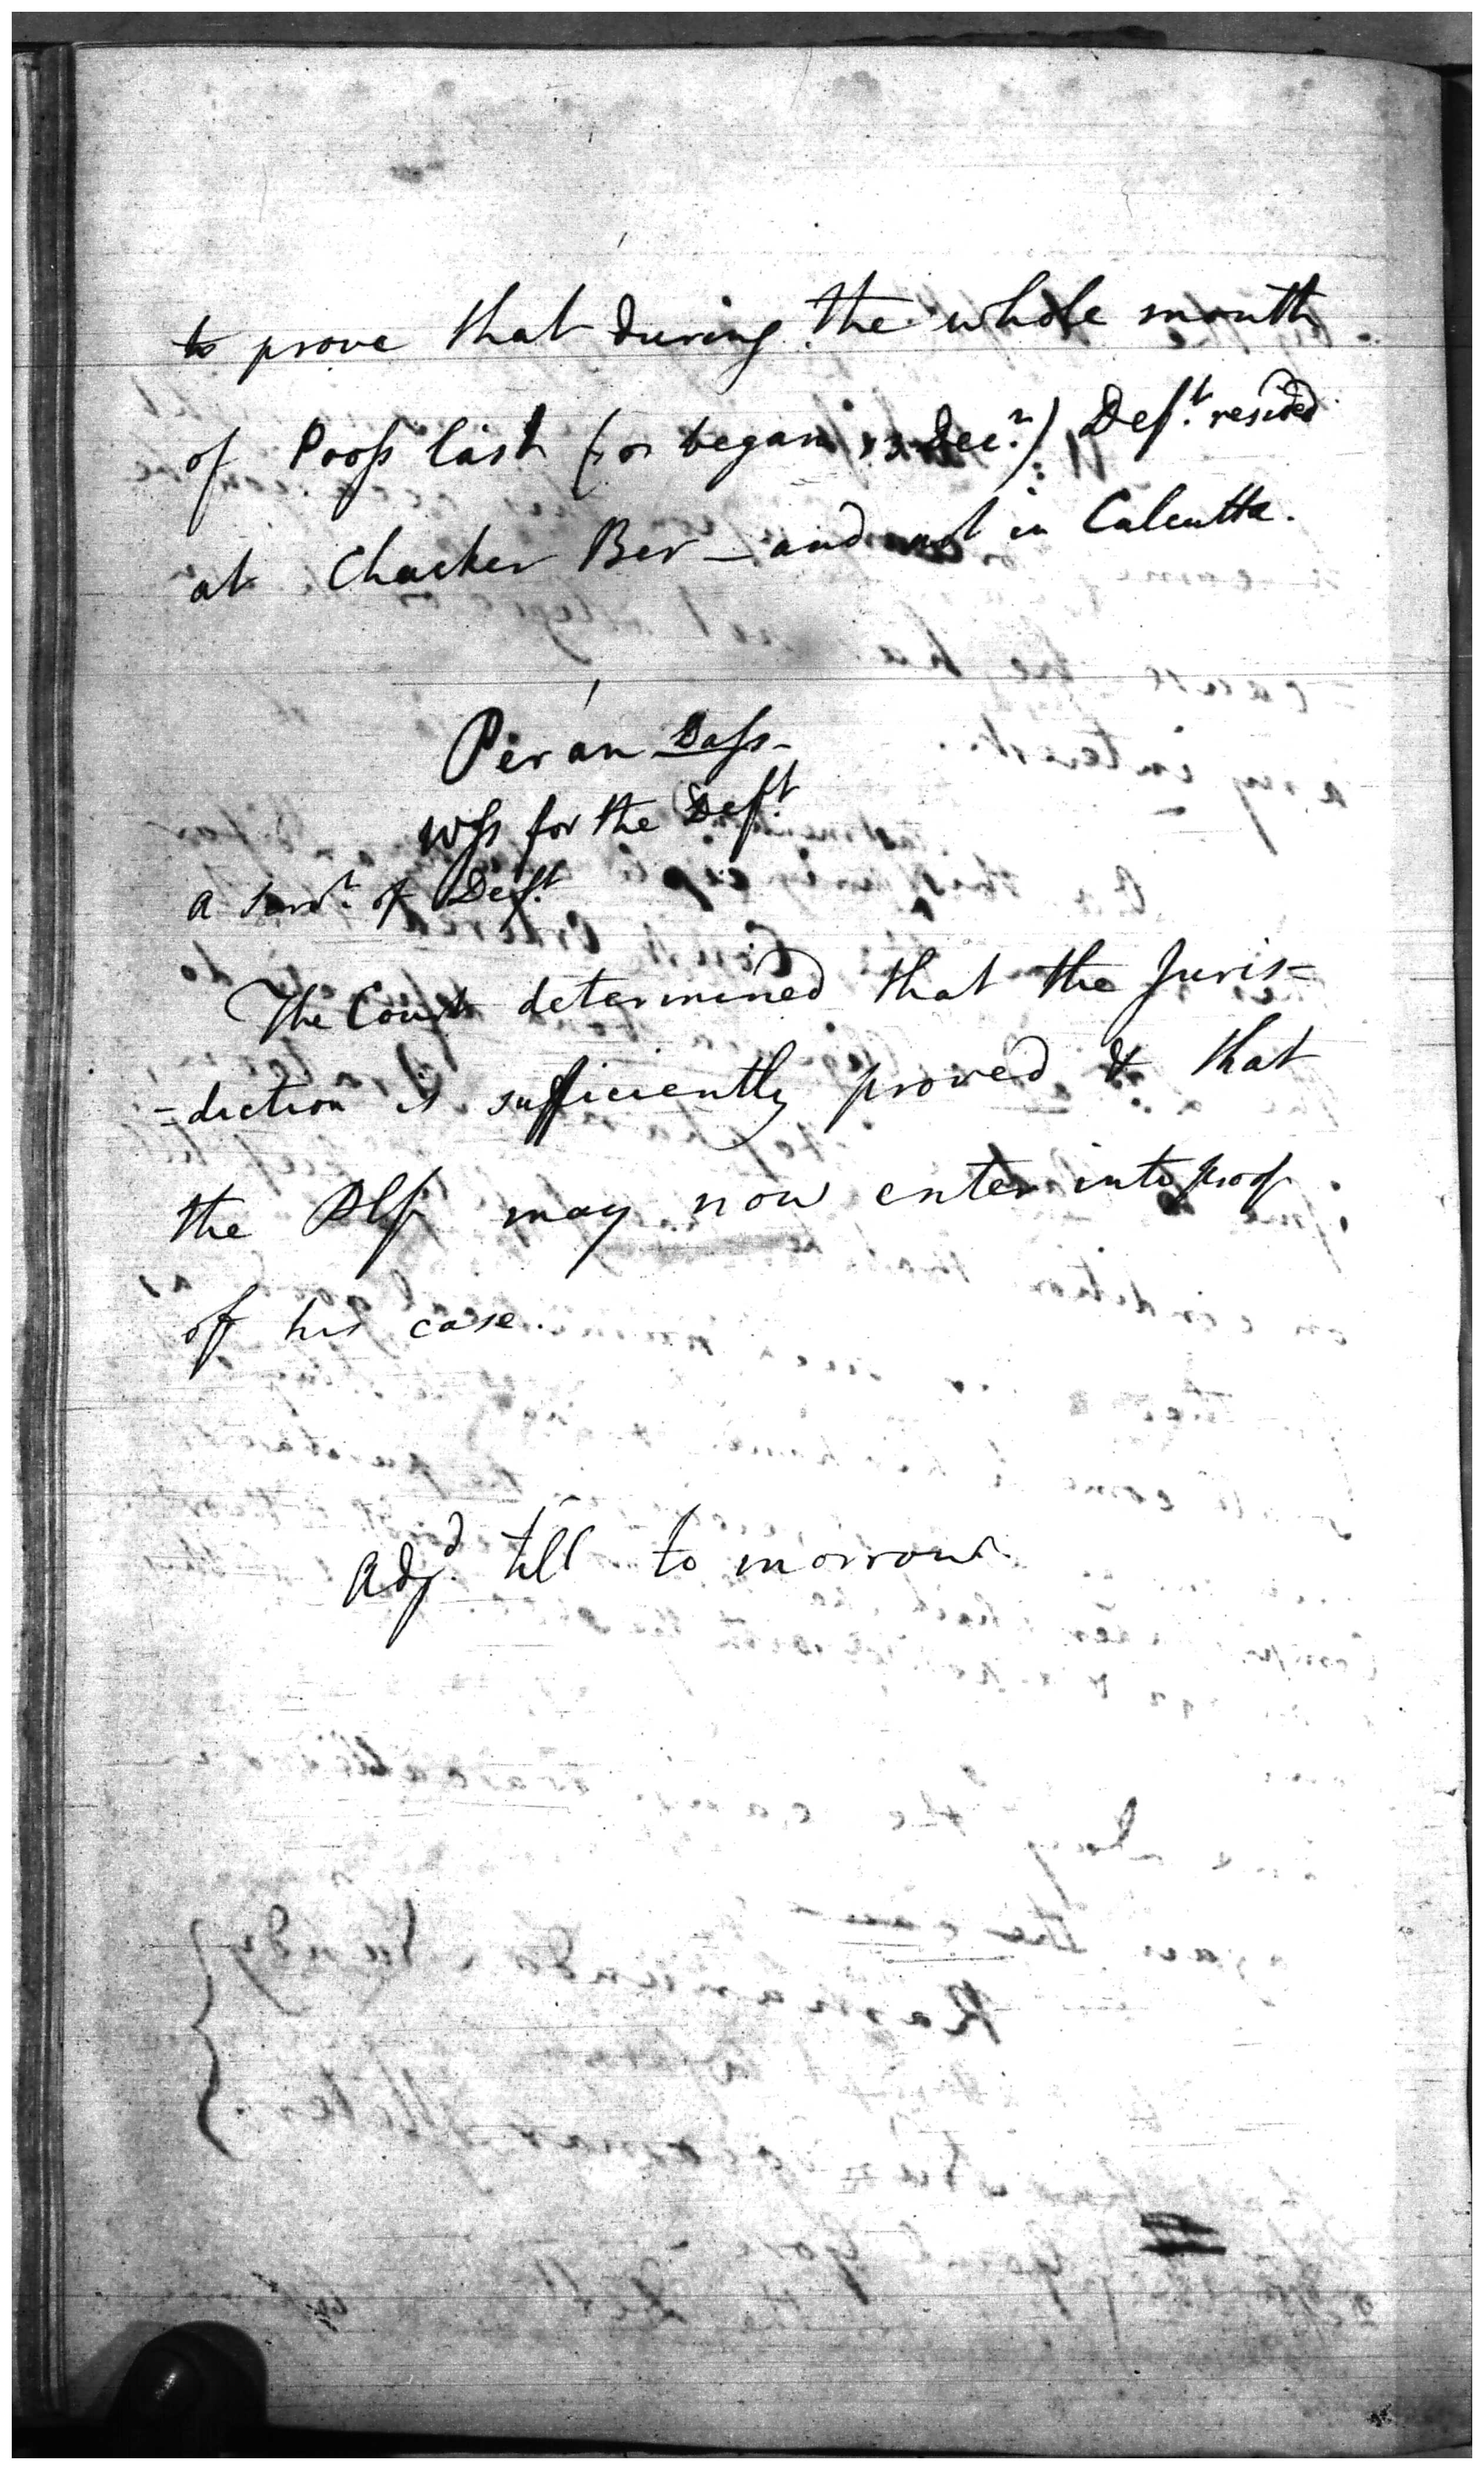 to prove that during the whole month
of Pooss last ( began 13 Dec.r) Def.t resided
at Chacker Ber — and not in Calcutta.
Peran Dass -
Wss for the Def.t
a Serv.t of Def.t
The Court determined that the Juris=
=diction is sufficiently proved & that
the Plf may now enter into proof
of his case.
Adj.d till to morrow.